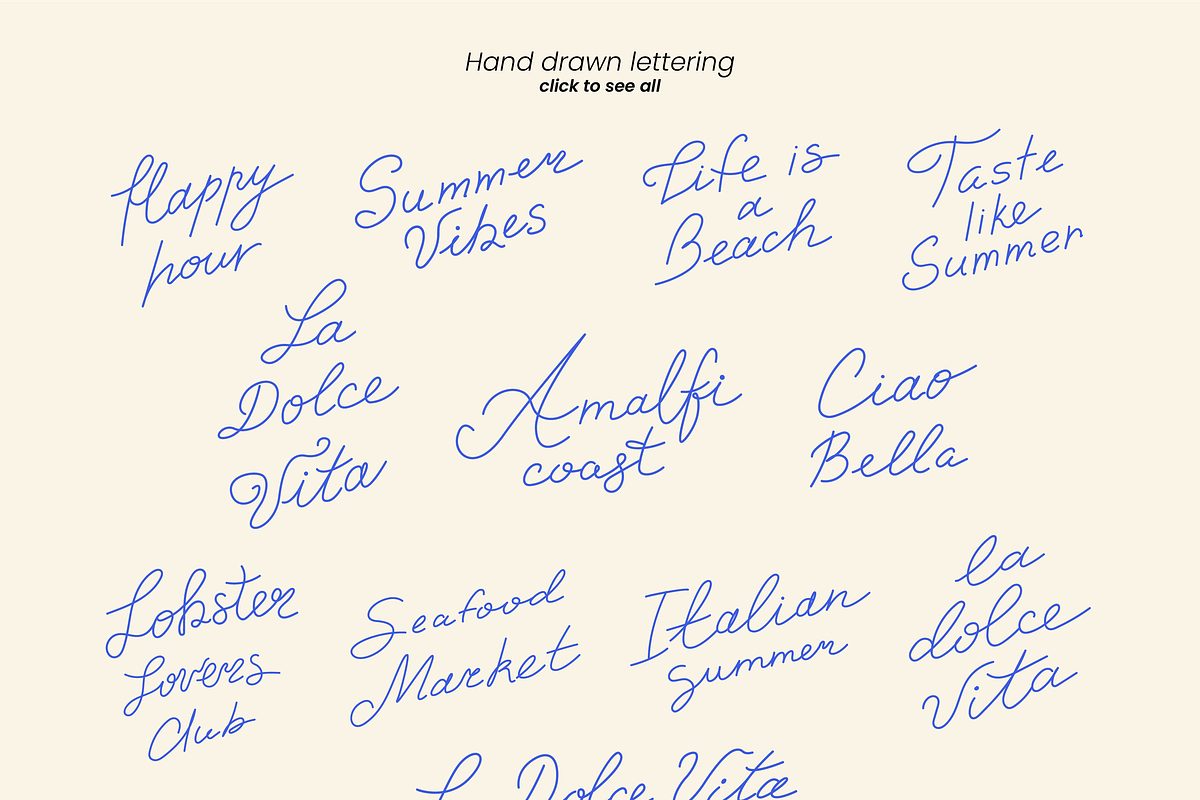 Hand drawn lettering
click to see all
Happy
hour
Summer
Vibes
Life is
a
Beach
Taste
like
Summer
La
Dolce
Vita
Amalfi
coast
Ciao
Bella
Lobster
Lovers
Club
Seafood
Market
Italian
summer
la
dolce
Vita
La Dolce Vita